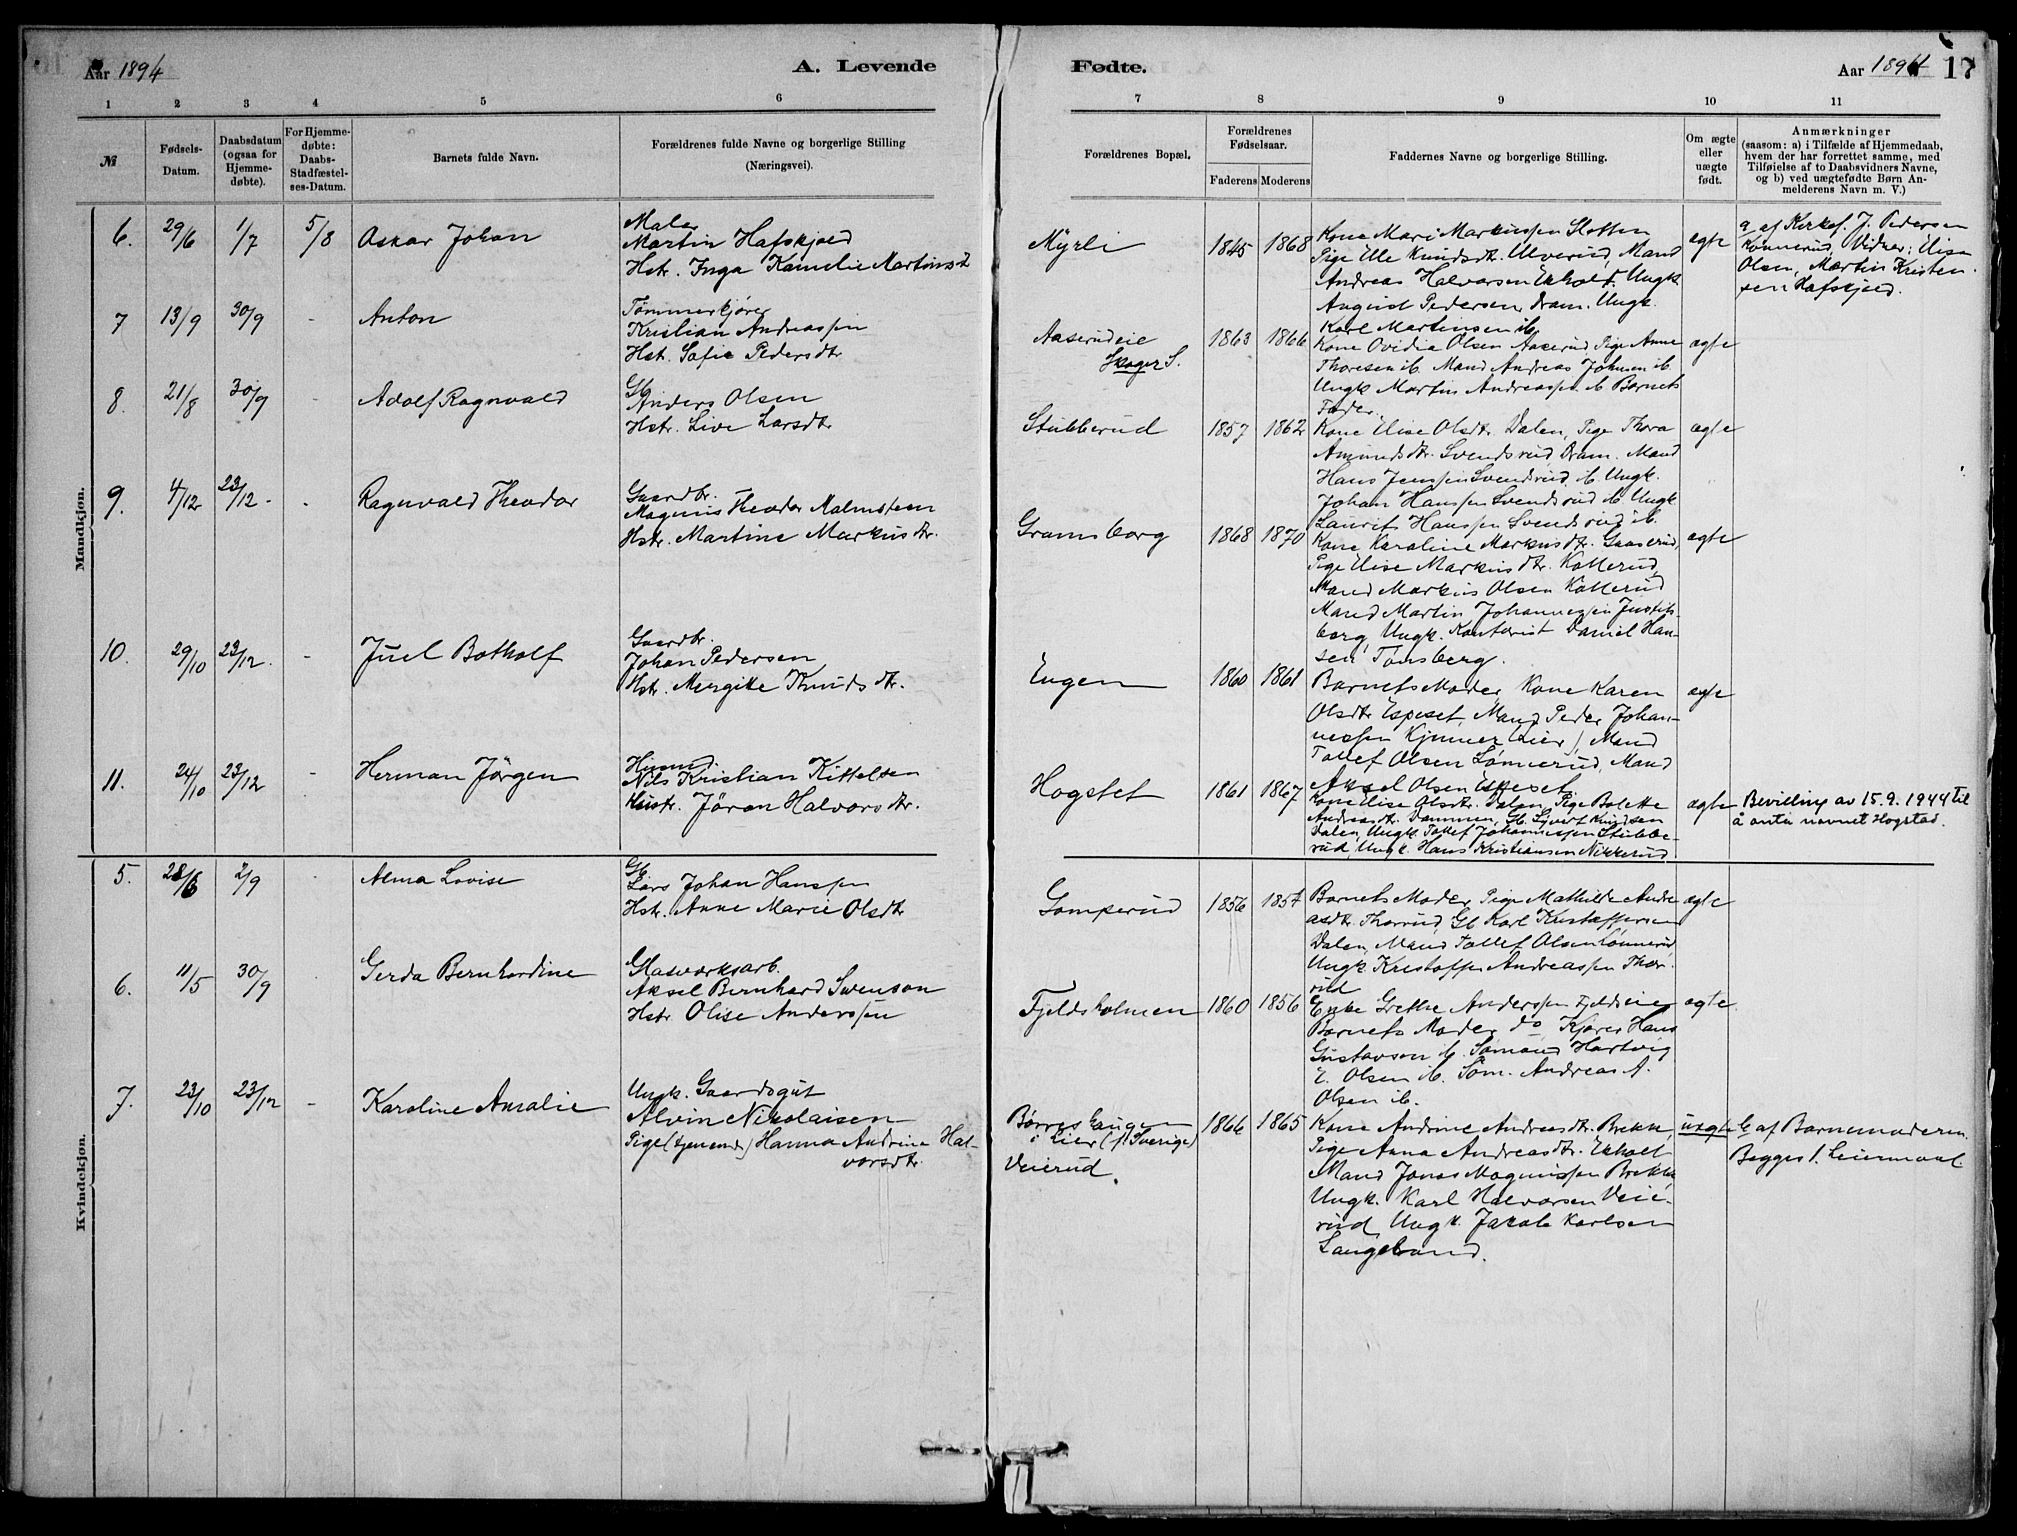 Aar 1894
A. Levende
Fødte.
Aar 1894
17
1 2 3 4 5 6 7 8 9 10 11
№
Fødsels-
Datum.
Daabsdatum
(ogsaa for
Hjemme-
døbte).
For Hjemme-
døbte:
Daabs-
Stadfæstel-
ses-Datum.
Barnets fulde Navn.
Forældrenes fulde Navne og borgerlige Stilling
(Næringsvei).
Forældrenes Bopæl.
Forældrenes
Fødselsaar.
Faderens Moderens
Faddernes Navne og borgerlige Stilling.
Om ægte
eller
uægte
født.
Anmærkninger
(saasom: a) i Tilfælde af Hjemmedaab,
hvem der har forrettet samme, med
Tilføielse af to Daabsvidners Navne,
og b) ved uægtefødte Børn An-
melderens Navn m. V.)
Mandkjøn.
6. 29/6 1/7 5/8 Oskar Johan
Maler
Martin Hafskjold
Hstr. Inga Kamelie Martinsd
Myrli 1845 1868
Kone Mari Markussen Sletten
Pige Elle Knudsdtr. Ulverud, Mand
Andreas Halvorsen Ekholt. Ungk.
August Pedersen Dram. Ungk.
Karl Martinsen ib.
ægte
a af Kirkes. J. Pedersen
Konnerud Vidner: Elise
Olsen, Martin Kristen-
sen Hafskjold.
7 13/9 30/9 - Anton
Tømmerkjører
Kristian Andreassen
Hst. Sofie Pedersdtr
Aaserudeie
Skoger S.
1863 1866
Kone Ovidia Olsen Aaserud Pige Anne
Thoresen ib. Mand Andreas Johnsen ib.
Ungk Martin Andreassen ib Barnets
Fader.
ægte
8. 21/8 30/9 - Adolf Ragnvald
Gb
Anders Olsen
Hstr. Live Larsdtr
Stubberud 1857 1862
Kone Elise Olsdtr. Dalen, Pige Thora
Amundsdtr. Svendsrud Dram. Mand
Hans Jenssen Svendsrud ib. Ungk.
Johan Hanssen Svendsrud ib Ungk
Laurits Hanssen Svendsrud ib.
ægte
9. 4/12 23/12 - Ragnvald Theodor
Gaardbr.
Magnus Theodor Malmsteen
Hstr. Martine Markusdtr.
Gramsborg 1868 1870
Kone Karoline Markusdtr. Gaaserud
Pige Elise Markusdtr. Kollerud,
Mand Markus Olsen Kollerud
Mand Martin Johannessen Justits-
borg, Ungk. Kontorist Daniel Han-
sen Tønsberg.
ægte
10. 29/10 23/12. - Juel Botholf
Gaardbr.
Johan Pedersen
Hstr. Mergitte Knudsdtr.
Engen 1860 1861
Barnets Moder, Kone Karen
Olsdtr Espeset, Mand Peder Johan-
nessen Kjenner (Lier), Mand
Tollef Olsen Lønnerud, Mand
Aksel Olsen Espeset.
ægte
11. 24/10 23/12 - Herman Jörgen
Husmd.
Nils Kristian Kittelsen
Hustr. Jöran Halvorsdtr.
Hogstet 1861 1867
Kone Elise Olsdtr. Dalen, Pige Bolette
Andreasdtr. Dammen, Gb. Sjvert Knudsen
Dalen, Ungk. Tollef Johannessen Stubbe-
rud, Ungk. Hans Kristiansen Nikkerud
ægte
Bevilling av 15.9.1944 til
å anta navnet Hogstad.
Kvindekjøn.
5. 28/6 2/9 Alma Lovise
Gb
Lars Johan Hanssen
Hstr. Anne Marie Olsdtr
Gomperud 1856 1857
Barnets Moder, Pige Mathilde Andre
asdtr. Thorrud, Gb Karl Kristoffersen
Dalen, Mand Tollef Olsen Lønnerud
Ungk. Kristoffer Andreassen Thor-
rud
ægte
6. 11/5 30/9 Gerda Bernhardine
Glasværksarb.
Aksel Bernhard Svenson
Hstr Olise Anderssen
Fjeldsholmen 1860 1856
Enke Grethe Anderssen Fjeldseie
Barnets Moder do Kjører Hans
Gustavsen ib. Sømand Hartvig
E. Olsen ib. Søm. Andreas A.
Olsen ib.
ægte.
7. 23/10 23/12 - Karoline Amalie
Ungk. Gaardsgut
Alvin Nikolaisen
Pige (tjenende) Hanna Andrine Hal-
vorsdtr.
Børreshaugen
i Lier (f. Sverige)
Veierud.
1866 1865
Kone Andrine Andreasdtr. Brekke,
Pige Anna Andreasdtr. Ekholt
Mand Jonas Magnussen Brekke,
Ungk. Karl Halvorsen Veie-
rud, Ungk. Jakob Karlsen
Langebrand.
uægte
b af Barnemoderen.
Begges 1. Leiermaal.